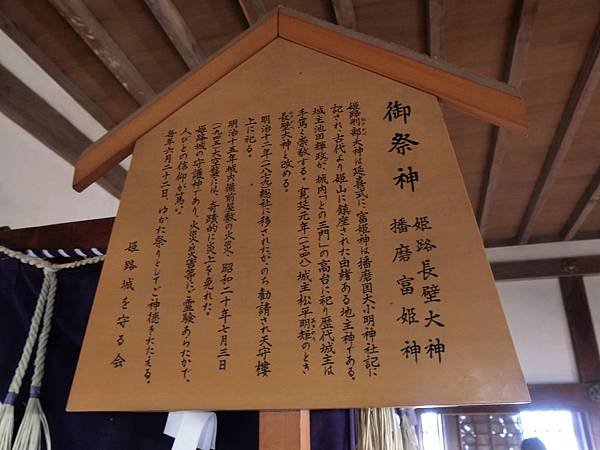 御祭神
姫路長壁大神
播磨富姫神
姫路刑部大神は延喜式に、富姫神は播磨国大小明神社記に
記され、古代より姫山に鎮座された由緒ある地主神である。
城主池田輝政が、城内「との三門」の高台に祀り歴代城主は
手篤く崇敬する。寛延元年(一七四八)城主松平明矩のとき
長壁大神と改める。
明治十二年(一八七九)総社に移されたがのち勧請され天守楼
上に祀る。
明治十五年城内備前屋敷の火災・昭和二十年七月三日
(一九四五)大空襲には、奇蹟的に炎上を免れた。
姫路城の守護神であり、火災・災害等に霊験あらたかで、
人びとの信仰が篤い。
毎年六月二十二日、ゆかた祭りとしてご神徳をたたえる。
姫路城を守る会